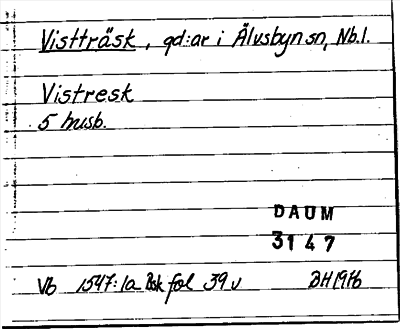 Vistträsk, gd:ar i Älvsbyn sn, Nb.l.
Vistresk
5 husb.
DAUM
3147
Vb 1547:1a Bsk fol 39v BH 1976